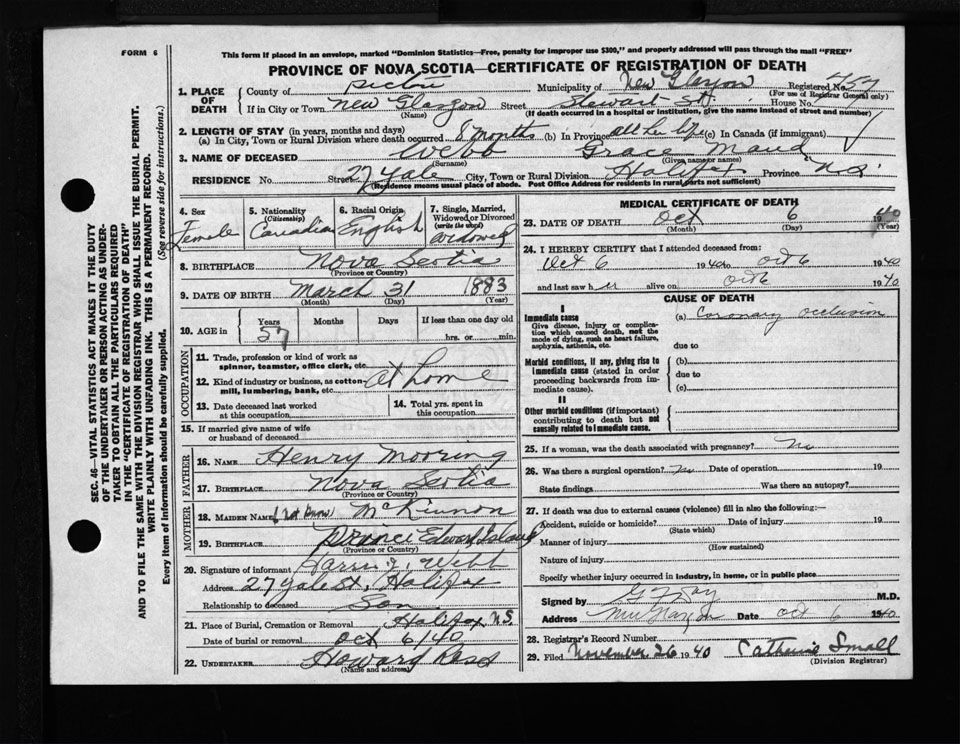 FORM 6
This form if placed in an envelope, marked "Dominion Statistics—Free, penalty for improper use $300," and properly addressed will pass through the mail "FREE"
PROVINCE OF NOVA SCOTIA—CERTIFICATE OF REGISTRATION OF DEATH
1. PLACE OF DEATH
County of Pictou Municipality of New Glasgow Registered No.
(For use of Registrar General only)
If in City or Town New Glasgow Street Stewart St. House No.
(Name) (If death occurred in a hospital or institution, give the name instead of street and number)
2. LENGTH OF STAY (in years, months and days)
(a) In City, Town or Rural Division where death occurred 8 months (b) In Province all her life (c) In Canada (if immigrant)
3. NAME OF DECEASED Webb Grace Maud
(Surname) (Given name or names)
RESIDENCE No. Street 27 Yale City, Town or Rural Division Halifax Province N.S.
(Residence means usual place of abode. Post Office Address for residents in rural parts not sufficient)
4. Sex Female
5. Nationality (Citizenship) Canadian
6. Racial Origin English
7. Single, Married, Widowed or Divorced (write the word) widowed
8. BIRTHPLACE Nova Scotia
(Province or Country)
9. DATE OF BIRTH March 31 1883
(Month) (Day) (Year)
10. AGE in Years 57 Months Days If less than one day old hrs. or min.
OCCUPATION
11. Trade, profession or kind of work as spinner, teamster, office clerk, etc.
12. Kind of industry or business, as cotton-mill, lumbering, bank, etc. at home
13. Date deceased last worked at this occupation
14. Total yrs. spent in this occupation
15. If married give name of wife or husband of deceased
FATHER
16. NAME Henry Mooring
17. BIRTHPLACE Nova Scotia
(Province or Country)
MOTHER
18. MAIDEN NAME (not known) McKinnon
19. BIRTHPLACE Prince Edward Island
(Province or Country)
20. Signature of informant Webb
Address 27 Yale St, Halifax
Relationship to deceased Son
21. Place of Burial, Cremation or Removal Halifax, N.S.
Date of burial or removal Oct 6/40
22. UNDERTAKER Howard Ross
(Name and address)
MEDICAL CERTIFICATE OF DEATH
23. DATE OF DEATH Oct 6 1940
(Month) (Day) (Year)
24. I HEREBY CERTIFY that I attended deceased from:
Oct 6 1940 to Oct 6 1940
and last saw her alive on Oct 6 1940
CAUSE OF DEATH
I
Immediate cause
Give disease, injury or complication which caused death, not the mode of dying, such as heart failure, asphyxia, asthenia, etc.
(a) Coronary occlusion
due to
Morbid conditions, if any, giving rise to immediate cause (stated in order proceeding backwards from immediate cause).
(b)
due to
(c)
II
Other morbid conditions (if important) contributing to death but not causally related to immediate cause.
25. If a woman, was the death associated with pregnancy? No
26. Was there a surgical operation? No Date of operation 19
State findings Was there an autopsy?
27. If death was due to external causes (violence) fill in also the following:—
Accident, suicide or homicide? Date of injury 19
(State which)
Manner of injury
(How sustained)
Nature of injury
Specify whether injury occurred in industry, in home, or in public place
Signed by M.D.
Address New Glasgow Date Oct 6 1940
28. Registrar's Record Number
29. Filed November 26 1940 Catherine Small
(Division Registrar)
SEC. 46—VITAL STATISTICS ACT MAKES IT THE DUTY
OF THE UNDERTAKER OR PERSON ACTING AS UNDER-
TAKER TO OBTAIN ALL THE PARTICULARS REQUIRED
IN THE "CERTIFICATE OF REGISTRATION OF DEATH"
AND TO FILE THE SAME WITH THE DIVISION REGISTRAR WHO SHALL ISSUE THE BURIAL PERMIT.
WRITE PLAINLY WITH UNFADING INK. THIS IS A PERMANENT RECORD.
Every item of information should be carefully supplied. (See reverse side for instructions.)